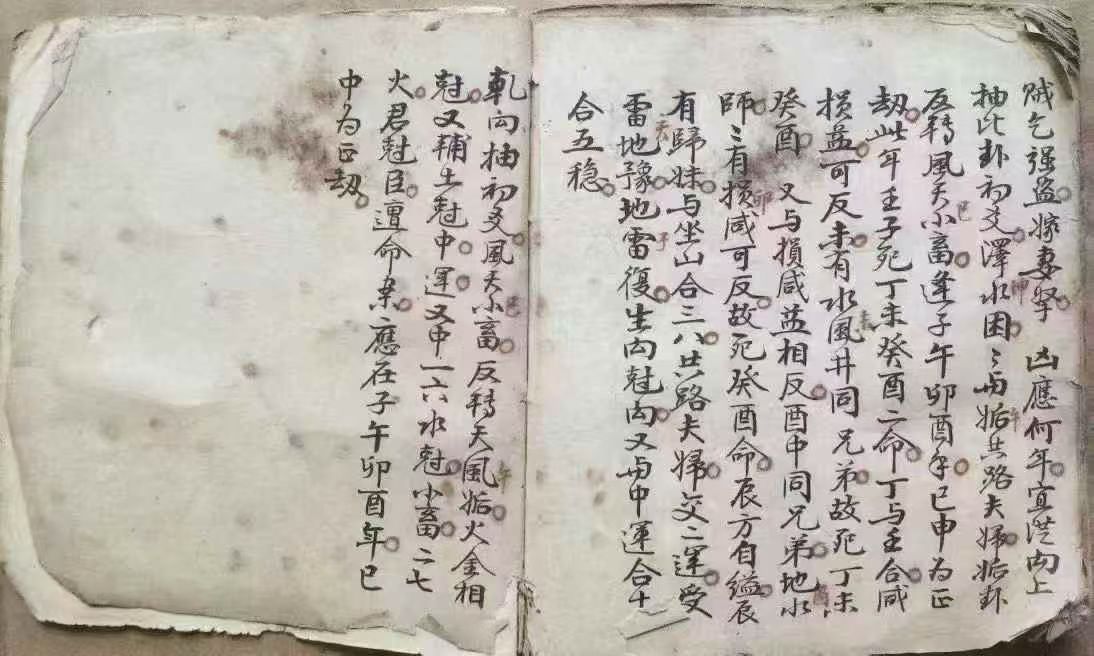 贼乞强盗嫁妻孥 凶應何年宜从向上
抽此卦初爻澤水困〻与姤共路夫婦姤卦
反转風天小畜逢子午卯酉年巳申为正
劫此年壬子死丁未癸酉二命丁与壬合咸
損益可反未有水風井同兄弟故死丁未
癸酉 又与損咸益相反酉中同兄弟地水
師〻有損咸可反故死癸酉命辰方自缢辰
有歸妹与坐山合三八共路夫婦交二運受
雷地豫地雷復生向尅内又与中運合十
合五稳
向抽初爻風天小畜反转天風姤火金相
尅又輔土尅中運又中一六水尅小畜二七
火君尅臣遭命案應在子午卯酉年巳
中为正劫